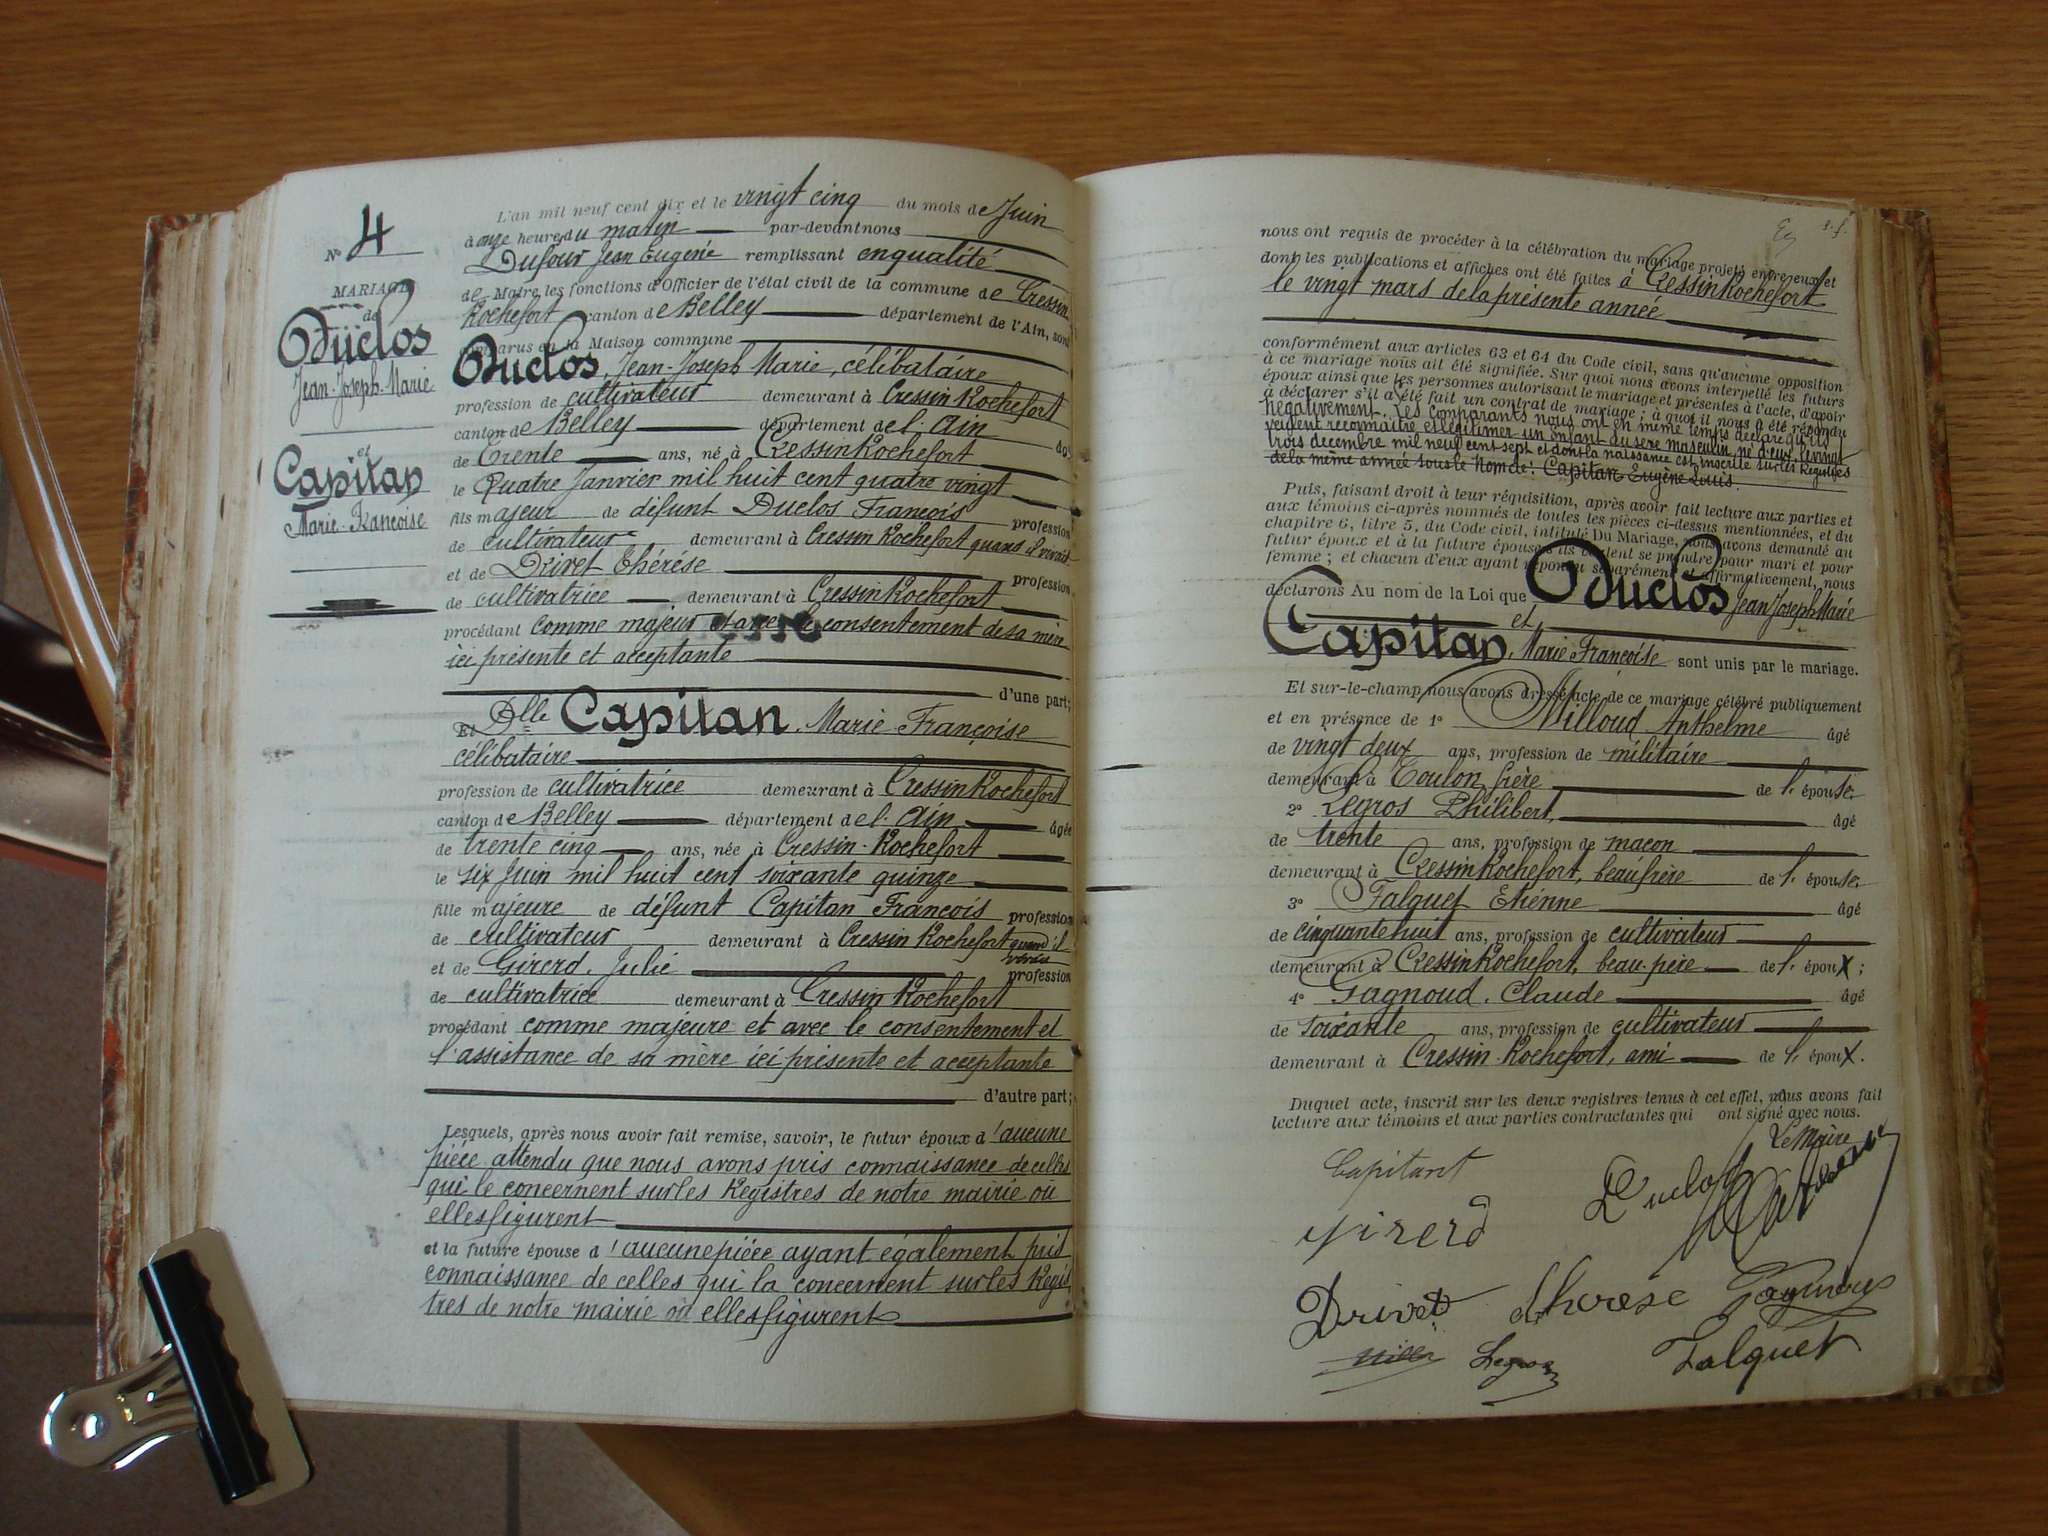 N° 4
MARIAGE
de
Duclos
Jean-Joseph-Marie
et
Capitan
Marie-Françoise
L'an mil neuf cent dix et le vingt cinq du mois de Juin
à onze heure du matin par-devant nous
Dufour Jean Eugène remplissant en qualité
de Maire les fonctions d'Officier de l'état civil de la commune de Cressin
Rochefort canton de Belley département de l'Ain, sont
comparus en la Maison commune
Duclos, Jean-Joseph Marie, célibataire
profession de cultivateur demeurant à Cressin Rochefort
canton de Belley département de l'Ain âgé
de Trente ans, né à Cressin Rochefort
le Quatre Janvier mil huit cent quatre vingt
fils majeur de défunt Duclos François profession
de cultivateur demeurant à Cressin Rochefort quand il vivait
et de Drivet Thérése profession
de cultivatrice demeurant à Cressin Rochefort
procédant comme majeur et avec le consentement de sa mère
ici présente et acceptante
d'une part;
Et Dlle Capitan, Marie Françoise
célibataire
profession de cultivatrice demeurant à Cressin Rochefort
canton de Belley département de l'Ain âgée
de trente cinq ans, née à Cressin-Rochefort
le six Juin mil huit cent soixante quinze
fille majeure de défunt Capitan François profession
de cultivateur demeurant à Cressin Rochefort quand il
vivait
et de Girerd, Julie profession
de cultivatrice demeurant à Cressin Rochefort
procédant comme majeure et avec le consentement et
l'assistance de sa mère ici présente et acceptante
d'autre part;
Lesquels, après nous avoir fait remise, savoir, le futur époux d'aucune
pièce attendu que nous avons pris connaissance de celles
qui le concernent sur les Registres de notre mairie où
elles figurent
et la future épouse d'aucune pièce ayant également pris
connaissance de celles qui la concernent sur les Regis
tres de notre mairie où elles figurent
nous ont requis de procéder à la célébration du mariage projeté entre eux et
dont les publications et affiches ont été faites à Cressin Rochefort
le vingt mars de la présente année
conformément aux articles 63 et 64 du Code civil, sans qu'aucune opposition
à ce mariage nous ait été signifiée. Sur quoi nous avons interpellé les futurs
époux ainsi que les personnes autorisant le mariage et présentes à l'acte, d'avoir
à déclarer s'il a été fait un contrat de mariage; à quoi il nous a été répondu
négativement. Les comparants nous ont en même temps déclaré qu'ils
veulent reconnaître et légitimer un enfant du sexe masculin né d'eux le vingt
trois décembre mil neuf cent sept et dont la naissance est inscrite sur les Registres
de la même année sous le nom de: Capitan Eugène Louis.
Puis, faisant droit à leur réquisition, après avoir fait lecture aux parties et
aux témoins ci-après nommés de toutes les pièces ci-dessus mentionnées, et du
chapitre 6, titre 5, du Code civil, intitulé Du Mariage, nous avons demandé au
futur époux et à la future épouse s'ils veulent se prendre pour mari et pour
femme; et chacun d'eux ayant répondu séparément et affirmativement, nous
déclarons Au nom de la Loi que Duclos Jean Joseph Marie
et
Capitan, Marie Françoise sont unis par le mariage.
Et sur-le-champ nous avons dressé acte de ce mariage célébré publiquement
et en présence de 1° Milloud Anthelme âgé
de vingt deux ans, profession de militaire
demeurant à Toulon, frère de l'épouse;
2° Legros Philibert, âgé
de trente ans, profession de maçon
demeurant à Cressin Rochefort, beau frère de l'épouse;
3° Falquet Etienne âgé
de cinquante huit ans, profession de cultivateur
demeurant à Cressin Rochefort, beau-père de l'époux;
4° Gagnoud, Claude âgé
de soixante ans, profession de cultivateur
demeurant à Cressin-Rochefort, ami de l'époux.
Duquel acte, inscrit sur les deux registres tenus à cet effet, nous avons fait
lecture aux témoins et aux parties contractantes qui ont signé avec nous.
Le Maire
Capitant
Duclos
Girerd
Drivet Therese Gagnoud
Legros Falquet